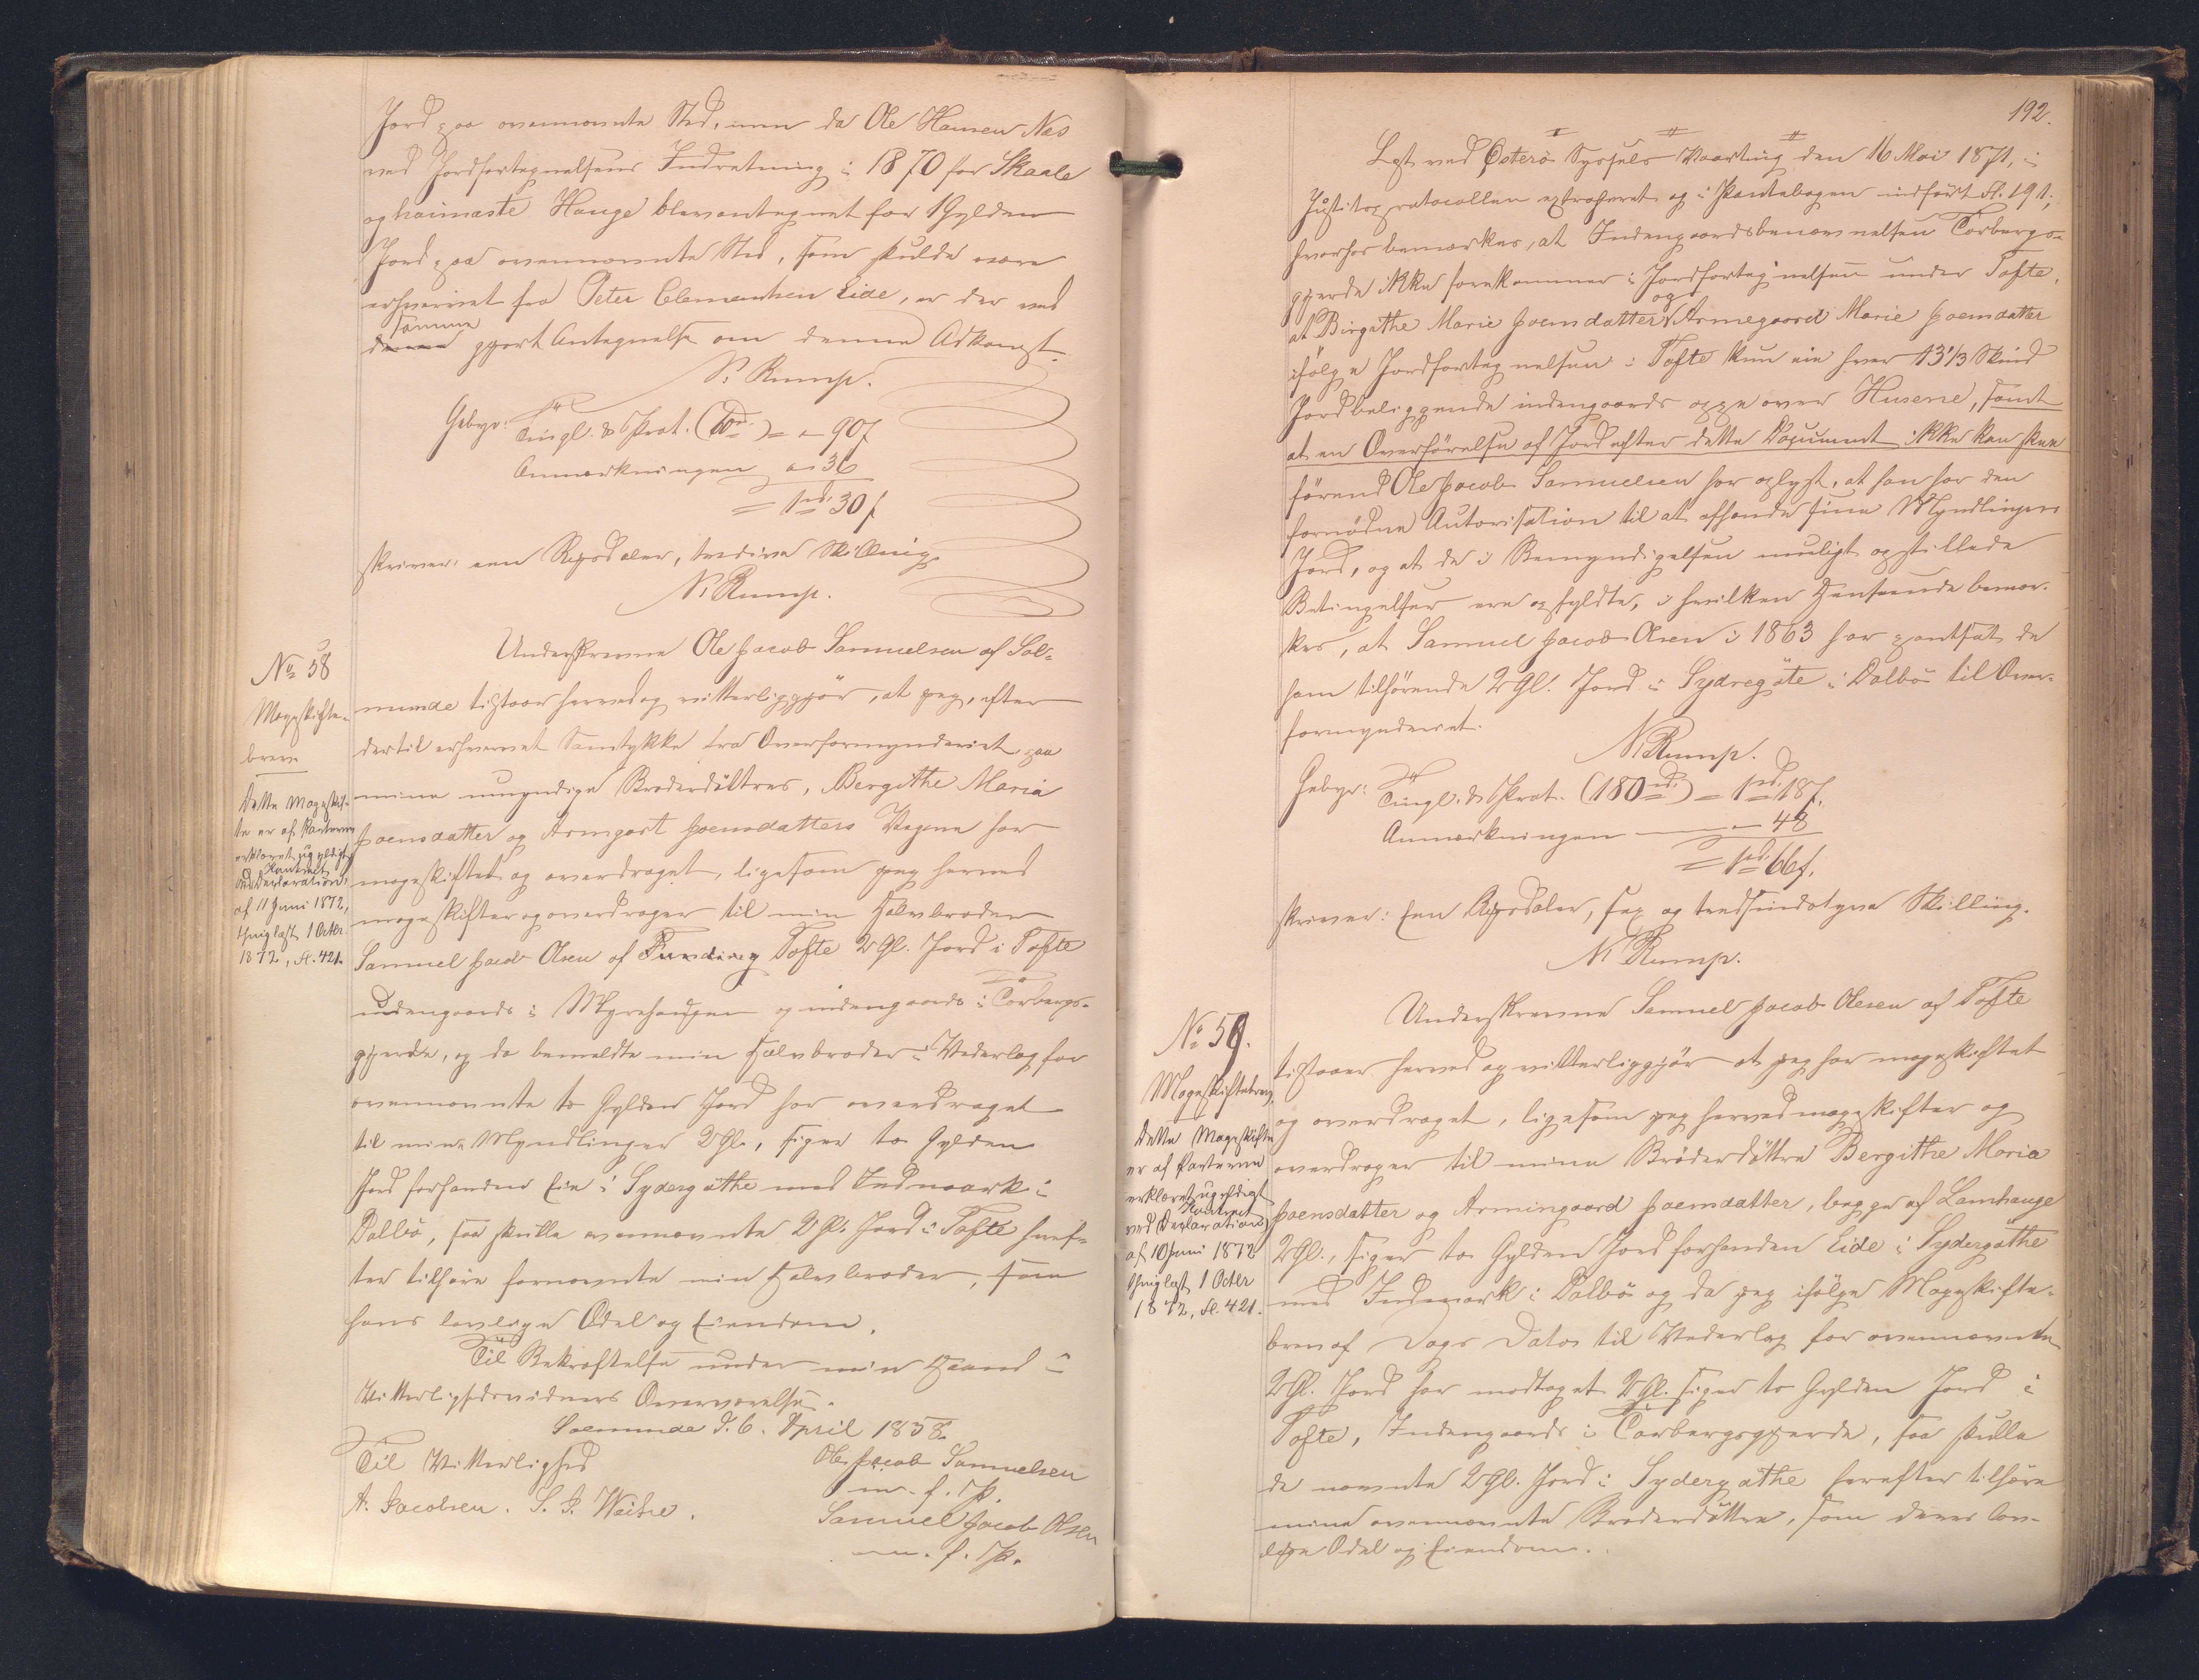 Jord paa ovennævnte Sted, men da Ole Hansen Næs
ved Jordfortegnelsens Indretning i 1870 for Skaale
og haimaste Hauge blev antegnet for 1 Gylden
Jord paa ovennævnte Sted, som skulde være
erhvervet fra Peter Clementsen Eide, er der ved
samme gjort Antegnelse om denne Adkomst.
N. Rump.
Gebyr: Tingl. & Prot. = - 90 f
Anmærkningen - 36
= 1 rd. 30 f
skriver: een Rigsdaler, tredive Skilling.
N. Rump.
No 58
Mageskifte-
brev
Dette Mageskif-
te er af Parterne
erklæret ugyldigt
ved Kontract
Declaration
af 11 Juni 1872,
thinglæst 1 Octbr.
1872, fl. 421.
Underskrevne Ole Jacob Samuelsen af Sol-
munde tilstaaer herved og vitterliggjør, at jeg, efter
dertil erhvervet Samtykke fra Overformynderiet paa
mine umyndige Broderdøttres, Bergithe Maria
Joensdatter og Armgart Joensdatters Vegne har
mageskiftet og overdraget, ligesom jeg herved
mageskifter og overdrager til min Halvbroder
Samuel Jacob Olsen af Funding Tofte 2 Gl. Jord i Tofte
udengaards i Myrehaugen og indengaards i Torbergs-
gjerde, og da bemeldte min Halvbroder i Vederlag for
ovennævnte to Gylden Jord har overdraget
til mine Myndlinger 2 Gl., siger to Gylden
Jord forhanden Eie i Sydergøthe med Indmark i
Dalbø, saa skulle ovennævnte 2 Gl. Jord i Tofte heref-
ter tilhøre fornævnte min Halvbroder, som
hans lovlige Odel og Eiendom.
Til Bekræftelse under min Haand i
Vitterlighedsvidners Overværelse.
Solmunde d. 6. April 1858.
Til Vitterlighed
Ole Jacob Samuelsen
m. f. P.
A. Jacobsen. S. J. Weihe.
Samuel Jacob Olsen
m. f. P.
192.
Læst ved Østerø Syssels Vaarting den 16 Mai 1871, i
Justitsprotocollen extraheret og i Pantebogen indført fl. 191,
hvorhos bemærkes, at Indengaardsbenævnelsen Torbergs-
gjerde ikke forekommer i Jordfortegnelsen under Tofte,
at Birgithe Marie Joensdatter og Armegaard Marie Joensdatter
ifølge Jordfortegnelsen i Tofte kun eie hver 13 1/3 Skind
Jord beliggende indengaards oppe over Husene, samt
at en Overførelse af Jord efter dette Document ikke kan skee
førend Ole Jacob Samuelsen har oplyst, at han har den
fornødne Autorisation til at afhænde sine Myndlingers
Jord, og at de i Bemyndigelsen muligt opstillede
Betingelser ere opfyldte, i hvilken Henseende bemær-
kes, at Samuel Jacob Olsen i 1863 har pantsat de
ham tilhørende 2 Gl. Jord i Sydregøte i Dalbø til Over-
formynderiet.
N. Rump.
Gebyr: Tingl. & Prot. (180 rd.) = 1 rd. 18 f.
Anmærkningen - 48
= 1 rd. 66 f.
skriver: Een Rigsdaler, sex og tredsindstyve Skilling.
N. Rump.
No 59.
Mageskiftebrev.
Dette Mageskifte
er af Parterne
erklæret ugyldigt
ved Kontract
Declaration
af 10 Juni 1872
thinglæst 1 Octbr
1872, fl. 421.
Underskrevne Samuel Jacob Olesen af Tofte
tilstaaer herved og vitterliggjør at jeg har mageskiftet
og overdraget, ligesom jeg herved mageskifter og
overdrager til mine Brøderdøttre Bergithe Maria
Joensdatter og Armingaard Joensdatter, begge af Lamhauge
2 Gl., siger to Gylden Jord forhanden Eide i Sydergøthe
med Indmark i Dalbø og da jeg ifølge Mageskifte-
brev af Dags Dato til Vederlag for ovennævnte
2 Gl. Jord har modtaget 2 Gl. siger to Gylden Jord i
Tofte, Indengaards i Torbergsgjerde, saa skulle
de nævnte 2 Gl. Jord i Sydergøthe herefter tilhøre
mine ovennævnte Broderdøttre, som deres lov-
lige Odel og Eiendom.